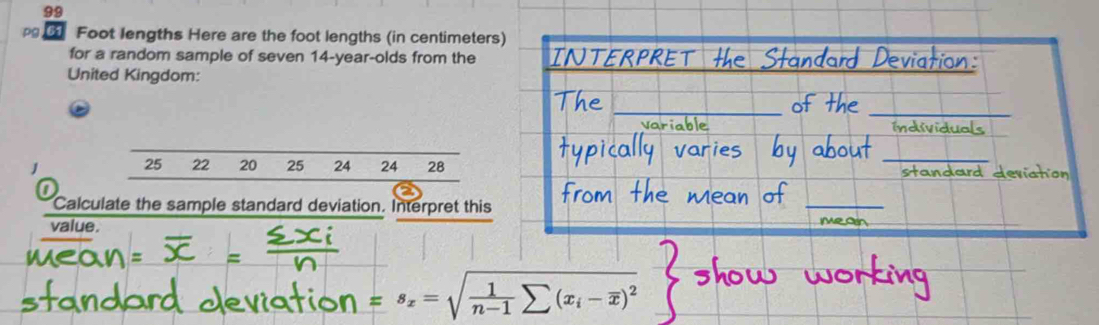 99
pg. 61 Foot lengths Here are the foot lengths (in centimeters)
for a random sample of seven 14-year-olds from the
United Kingdom:
25 22 20 25 24 24 28
① ②
Calculate the sample standard deviation. Interpret this
value.
mean = x̄ = Σxi / n
standard deviation = sₓ = √(1/(n−1) ∑ (xᵢ − x̄)²) } show working
INTERPRET the Standard Deviation:
The ________ of the ________
variable individuals
typically varies by about ________
standard deviation
from the mean of ________
mean